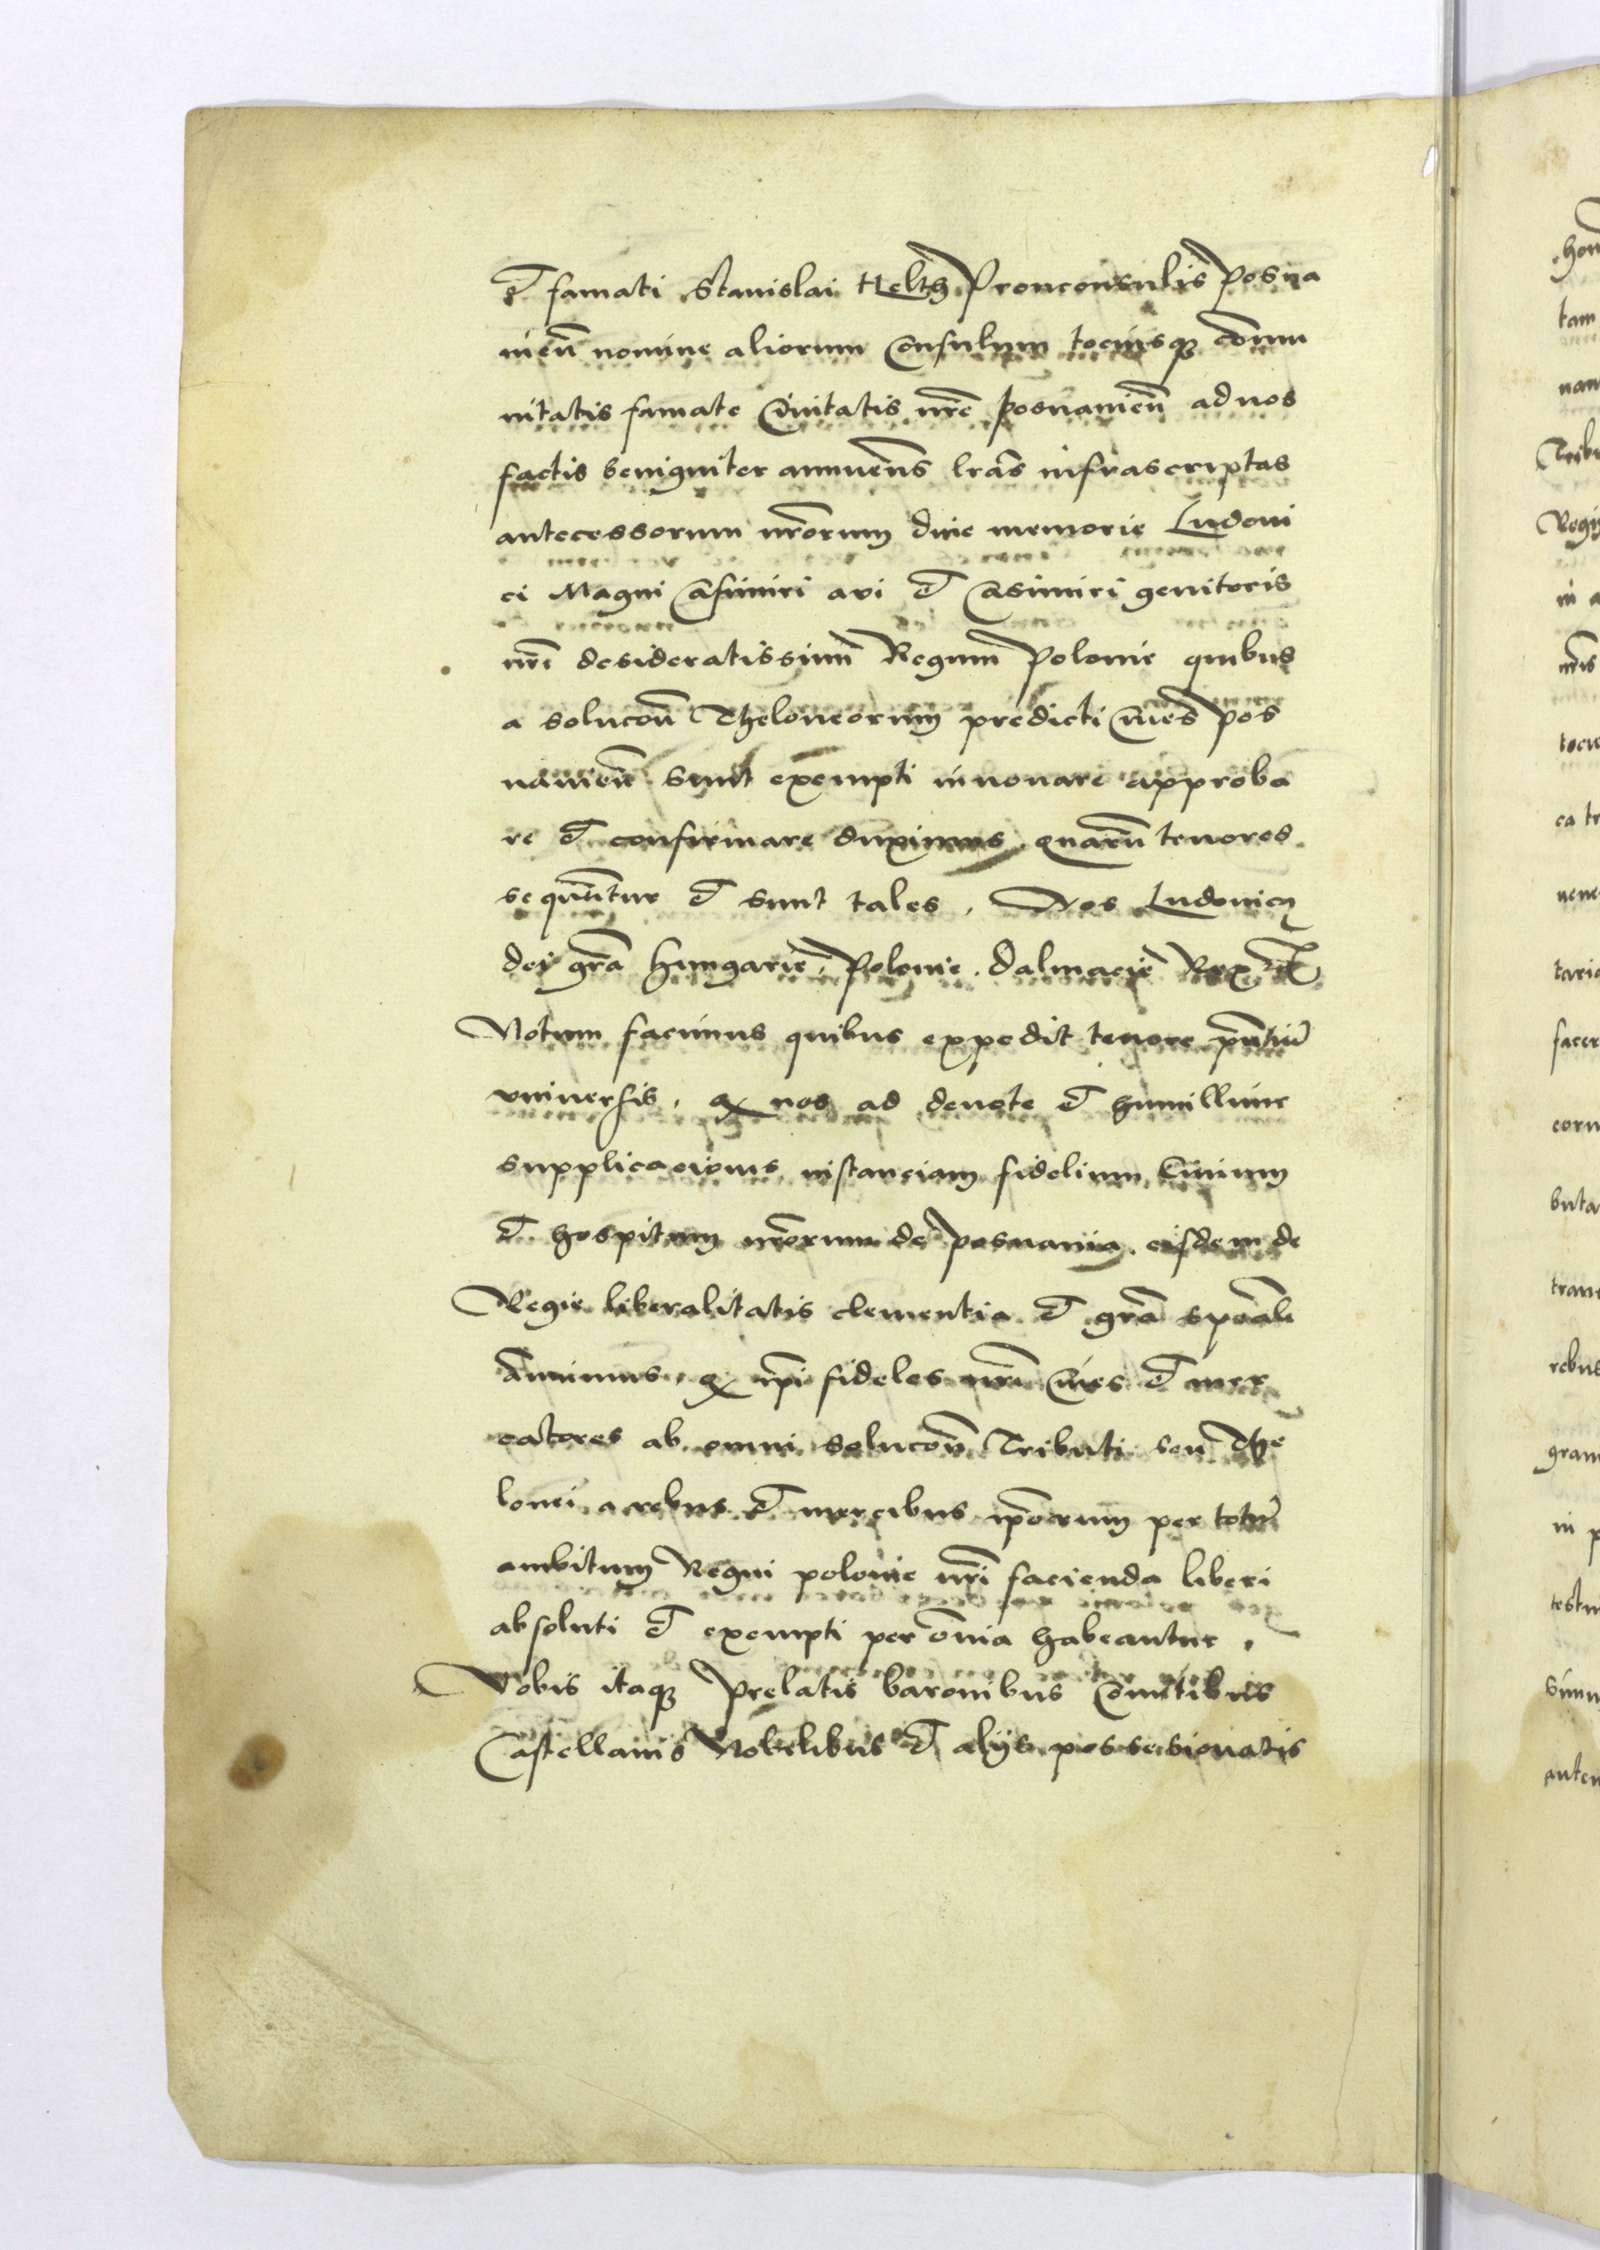 et famati Stanislai Helth Pronconsulis Posna
nien̄ nomine aliorum Consulum tociusqꝫ Co͞mu
nitatis famate Civitatis nr̄e posnanien̄ ad nos
factis benigniter annuen̄s lr̄as infrascriptas
antecessorum nr̄orum dive memorie Ludovi
ci Magni Casimiri avi et Casimiri genitoris
nr̄i desideratissim̄ Regum Polonie quibus
a solucōn Theloneorum predicti Cives Pos
nanien̄ sunt exempti innovare approba
re et confirmare duximus quarū tenores
sequūtur et sunt tales. Nos Ludovicꝯ
dei gr̄a Hungarie, Polonie. Dalmacie Rex etc
Notum facimus quibus expedit tenore pn̄tiū
universis. qꝫ nos ad devote et humillime
supplicacionis instanciam fidelium Civium
et hospitum nr̄orum de posnania. eisdem de
Regie liberalitatis clementia et gr̄a spēali
Annuimus. qꝫ ip̄i fideles nr̄i Cives et mer
catores ab omni solucōn Tributi seu The
lonei a rebus et mercibus ip̄orum per totū
ambitum Regni polonie nr̄i facienda liberi
absoluti et exempti per ōmia habeantur.
Vobis itaqꝫ Prelatis baronibus Comitibus
Castellanis Nobilibus et alijs possesionatis